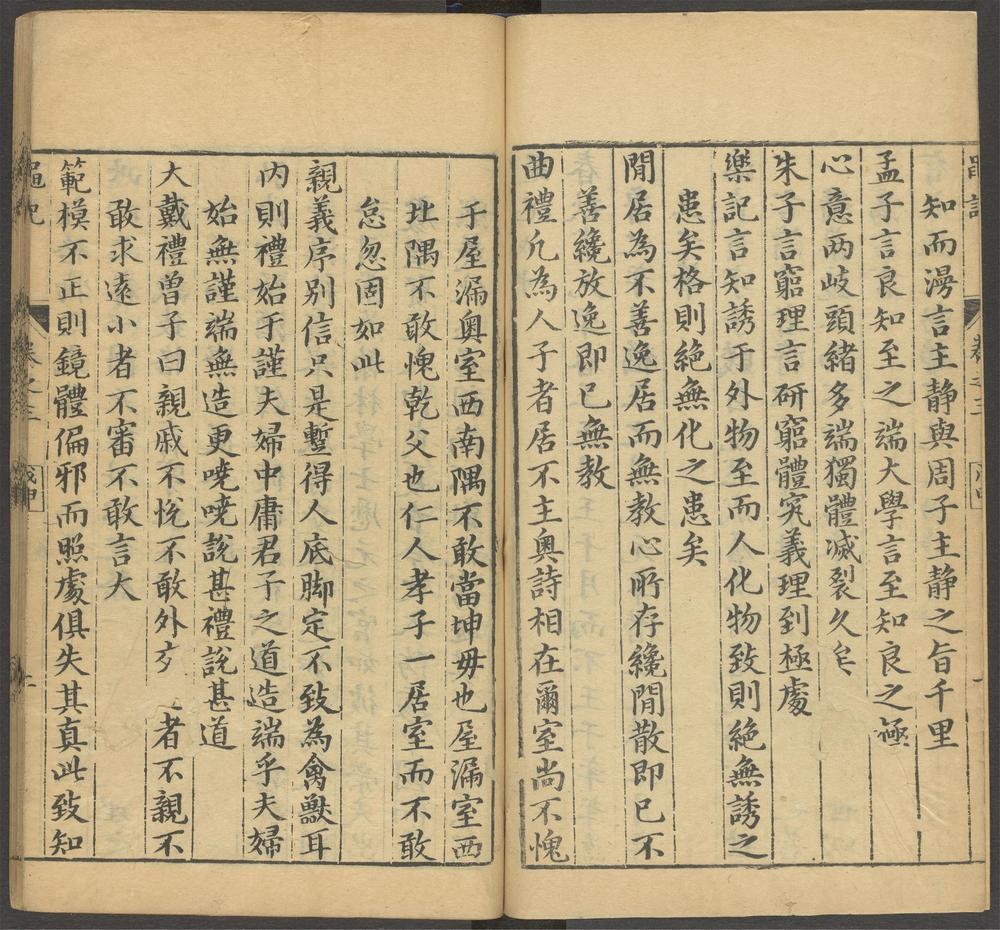 知而漫言主静與周子主静之旨千里
孟子言良知至之端大學言至知良之極
心意两岐頭緒多端獨體滅裂久矣
朱子言窮理言研窮體究義理到極處
樂記言知誘于外物至而人化物致則絶無誘之
患矣格則絶無化之患矣
閒居為不善逸居而無教心所存纔閒散即已不
善纔放逸即已無教
曲禮凡為人子者居不主奥詩相在爾室尚不愧
于屋漏奥室西南隅不敢當坤毋也屋漏室西
北隅不敢愧乾父也仁人孝子一居室而不敢
怠忽固如此
親義序别信只是蹔得人底脚定不致為禽獸耳
内則禮始于謹夫婦中庸君子之道造端乎夫婦
始無謹端無造更嘵嘵說甚禮說甚道
大戴禮曽子曰親戚不恱不敢外 者不親不
敢求遠小者不審不敢言大
範模不正則鏡體偏邪而照處俱失其真此致知
卷之三